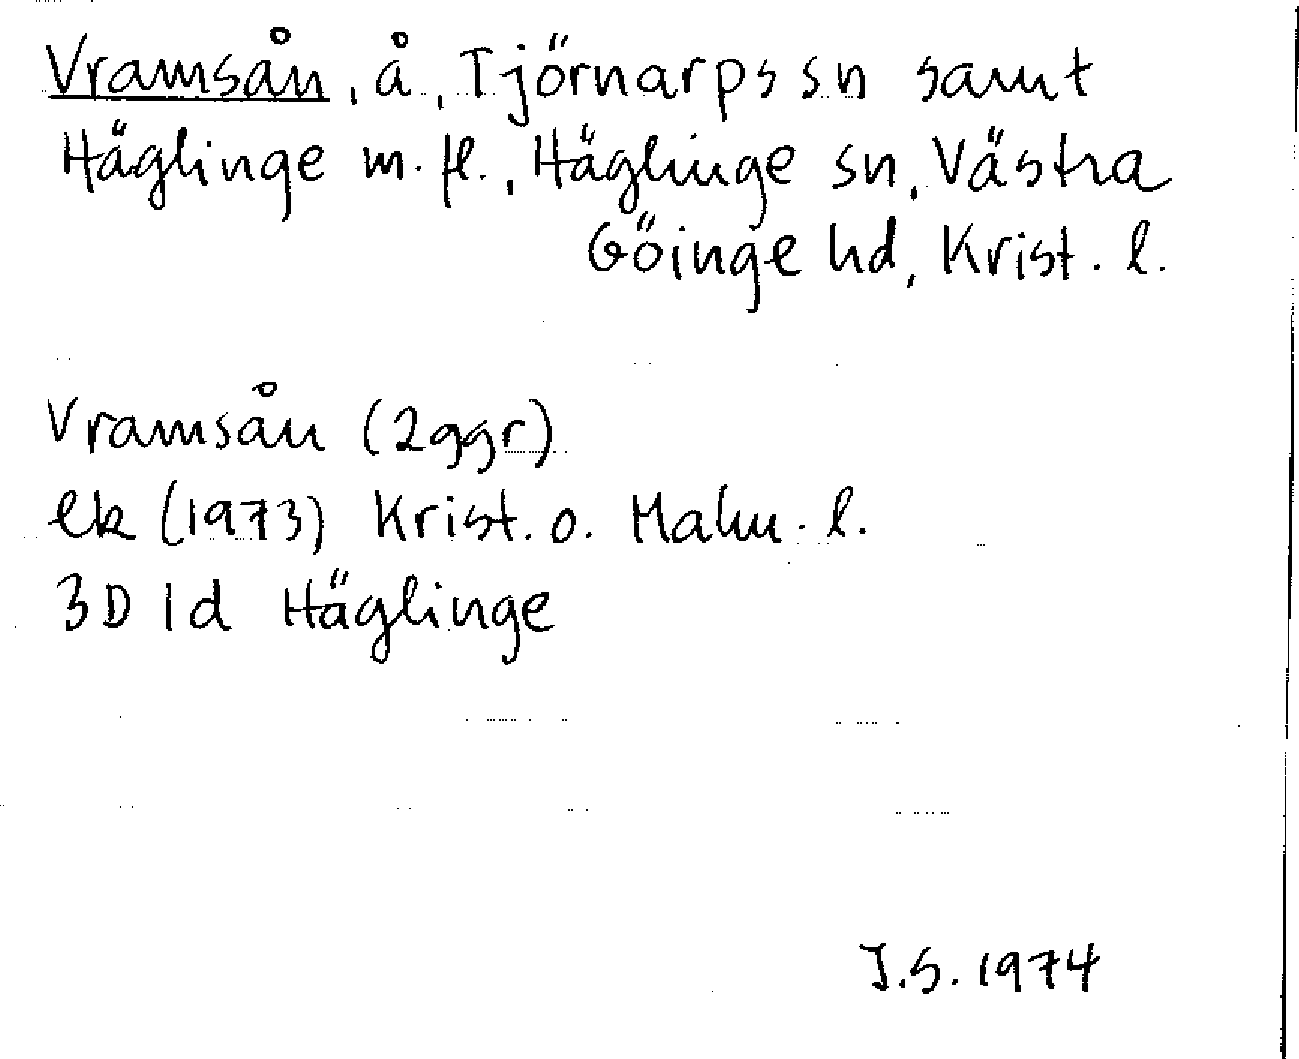 Vramsån, å, Tjörnarps sn samt
Häglinge m.fl., Häglinge sn, Västra
Göinge hd, Krist. l.
Vramsån (2ggr)
ek (1973) Krist. o. Malm. l.
3D 1d Häglinge
J.S. 1974